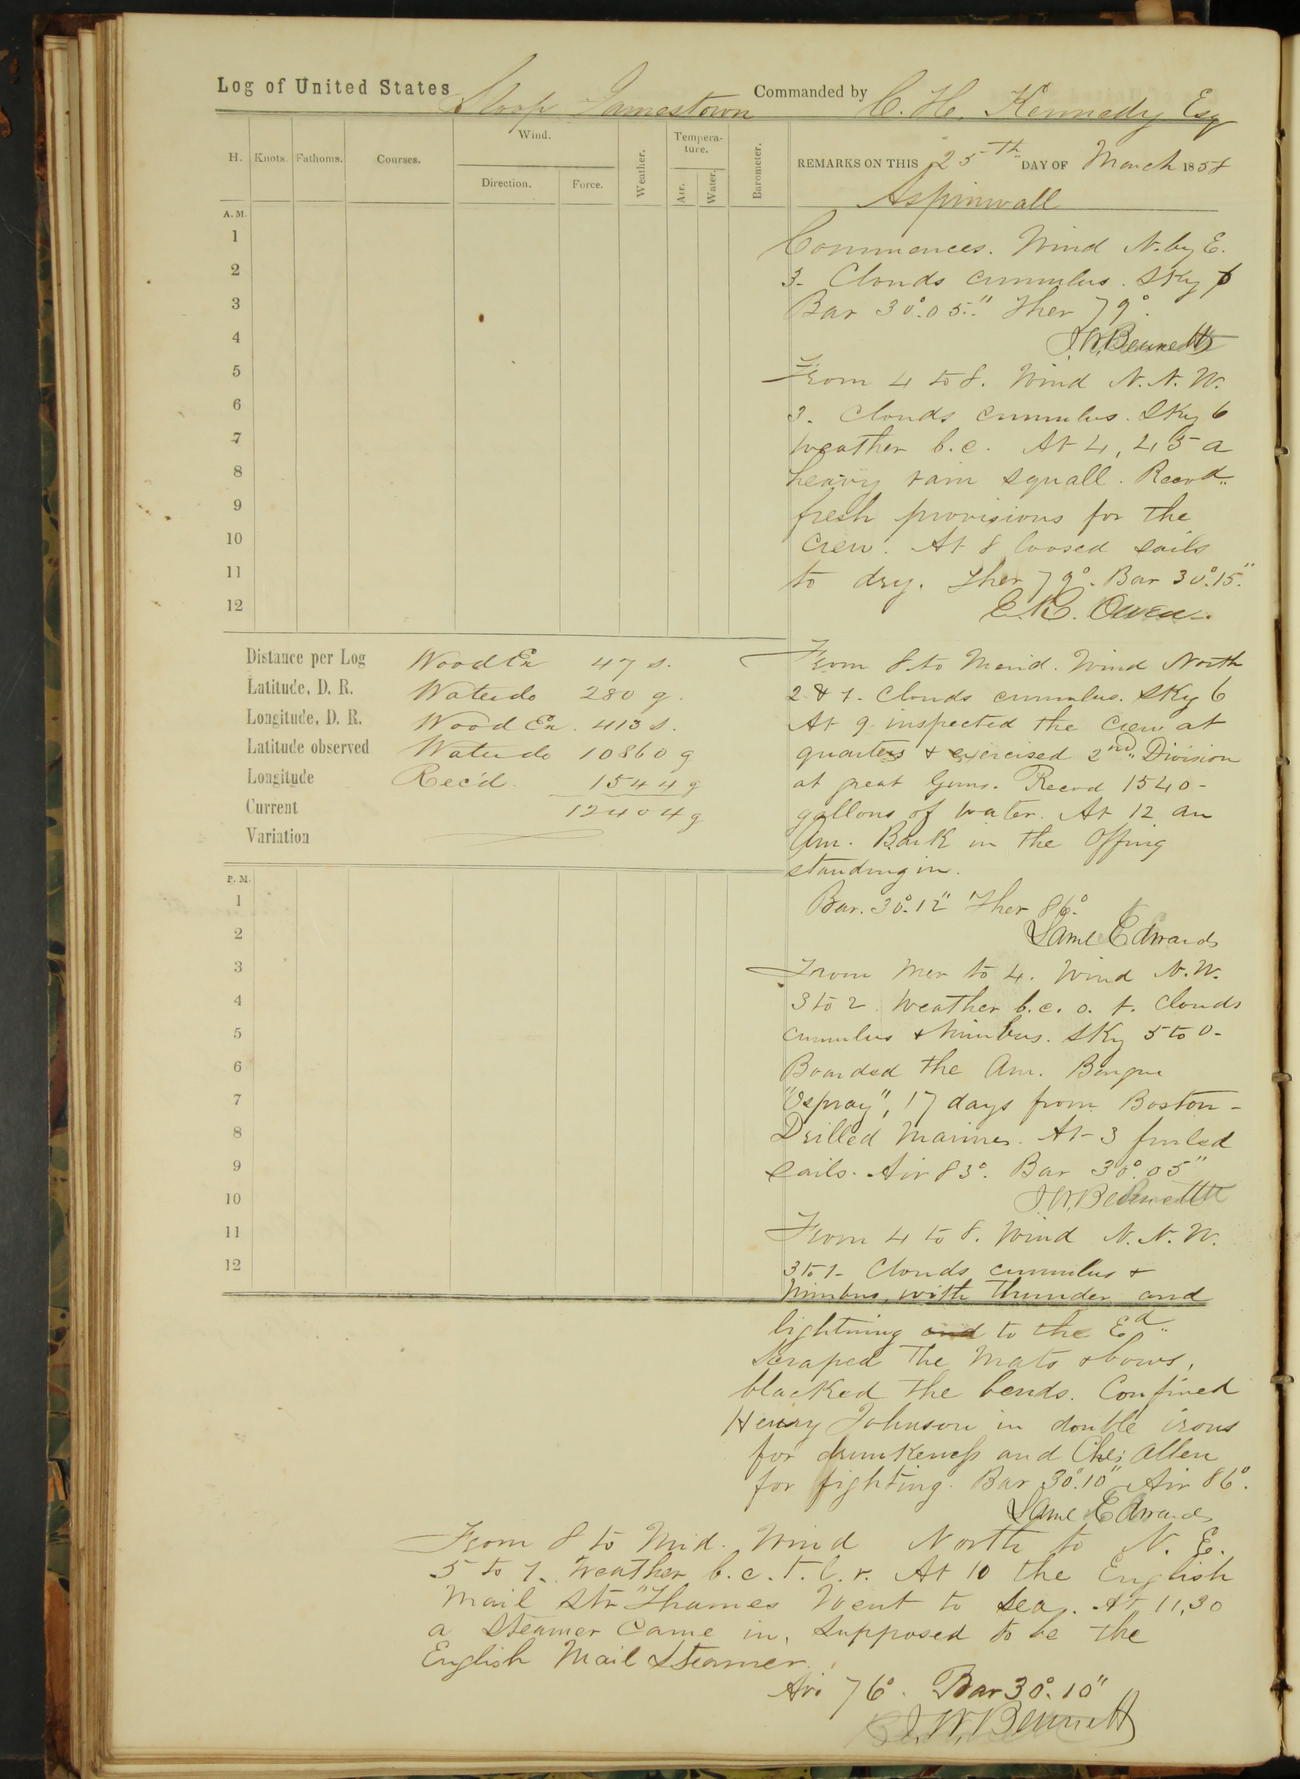 Log of United States Sloop Jamestown Commanded by C. H. Kennedy Esq
H. Knots. Fathoms. Courses. Wind. Direction. Force. Weather. Tempera-ture. Air. Water. Barometer.
REMARKS ON THIS 25th DAY OF March 1858
Aspinwall
A. M.
1
2
3
4
5
6
7
8
9
10
11
12
Commences. Wind N. by E.
3. Clouds cumulus. Sky 6
Bar 30°.05." Ther 79°.
J. W. Bennett
From 4 to 8. Wind N. N. W.
3. Clouds cumulus. Sky 6
Weather b. c. At 4,45 a
heavy rain squall. Recvd..
fresh provisions for the
crew. At 8 loosed sails
to dry. Ther 79°. Bar 30°.15."
E. K. Owen.
Distance per Log Wood Ex 47 s.
Latitude, D. R. Water do 280 g.
Longitude, D. R. Wood Ex. 413 s.
Latitude observed Water do 10860 g
Longitude Rec'd. 1544 g
Current 12404 g
Variation
From 8 to Merid. Wind North
2 & 1. Clouds cumulus. Sky 6
At 9 inspected the crew at
quarters & exercised 2nd.. Division
at great Guns. Recvd 1540-
gallons of water. At 12 an
Am. Bark in the Offing
standing in.
Bar. 30°.12" Ther 86°.
Saml Edwards
P. M.
1
2
3
4
5
6
7
8
9
10
11
12
From Mer to 4. Wind N. W.
3 to 2. Weather b. c. o. t. Clouds
cumulus & Nimbus. Sky 5 to 0-
Boarded the Am. Barque
"Ospray", 17 days from Boston-
Drilled Marines. At 3 furled
sails. Air 83°. Bar 30°.05"
J. W. Bennett
From 4 to 8. Wind N. N. W.
3 to 1- Clouds cumulus &
Nimbus, with thunder and
lightning and to the Ed..
Scraped the Mats & bows,
blacked the bends. Confined
Henry Johnson in double irons
for drunkeness and Chs: Allen
for fighting. Bar 30°.10" Air 86°.
Saml Edwards
From 8 to Mid. Wind North to N. E.
5 to 1. Weather b. c. t. l. r. At 10 the English
Mail Str "Thames Went to Sea. At 11,30
a Steamer Came in, Supposed to be the
English Mail Steamer.
Air 76°. Bar 30°.10"
J. W. Bennett